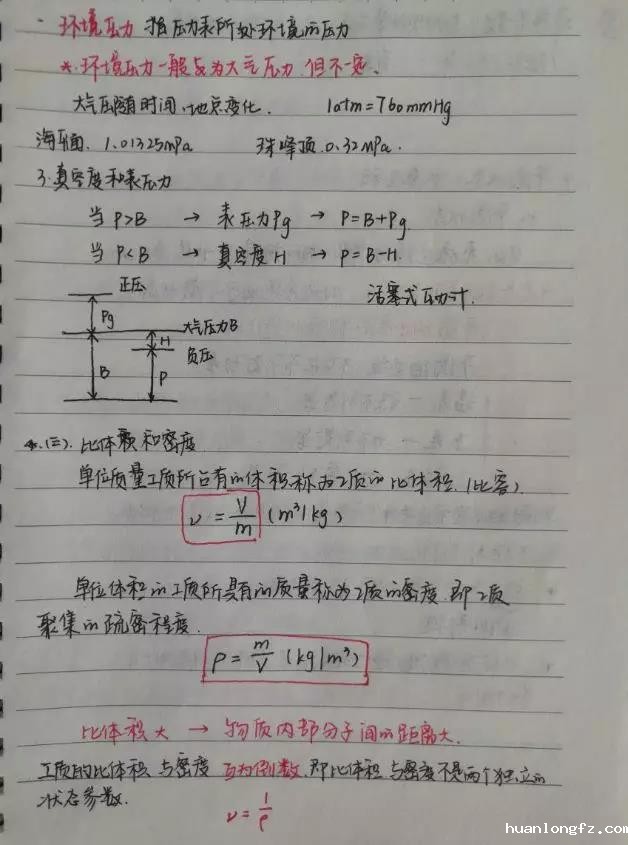 · 环境压力 指压力表所处环境的压力
*. 环境压力一般为大气压力, 但不一定.
大气压随时间、地点变化. 1atm=760mmHg
海平面. 1.01325mPa 珠峰顶. 0.32mPa.
3. 真空度和表压力
当 P>B → 表压力Pg → P=B+Pg.
当 P<B → 真空度H → P=B-H.
正压 活塞式压力计.
Pg 大气压力B
H 负压
B P
*.(三). 比体积和密度
单位质量工质所占有的体积称为工质的比体积.(比容)
ν = V/m (m³/kg)
单位体积的工质所具有的质量称为工质的密度. 即工质
聚集的疏密程度.
ρ = m/V (kg/m³)
比体积大 → 物质内部分子间的距离大.
工质的比体积与密度互为倒数. 即比体积与密度不是两个独立的
状态参数. ν = 1/ρ
huanlongfz.com